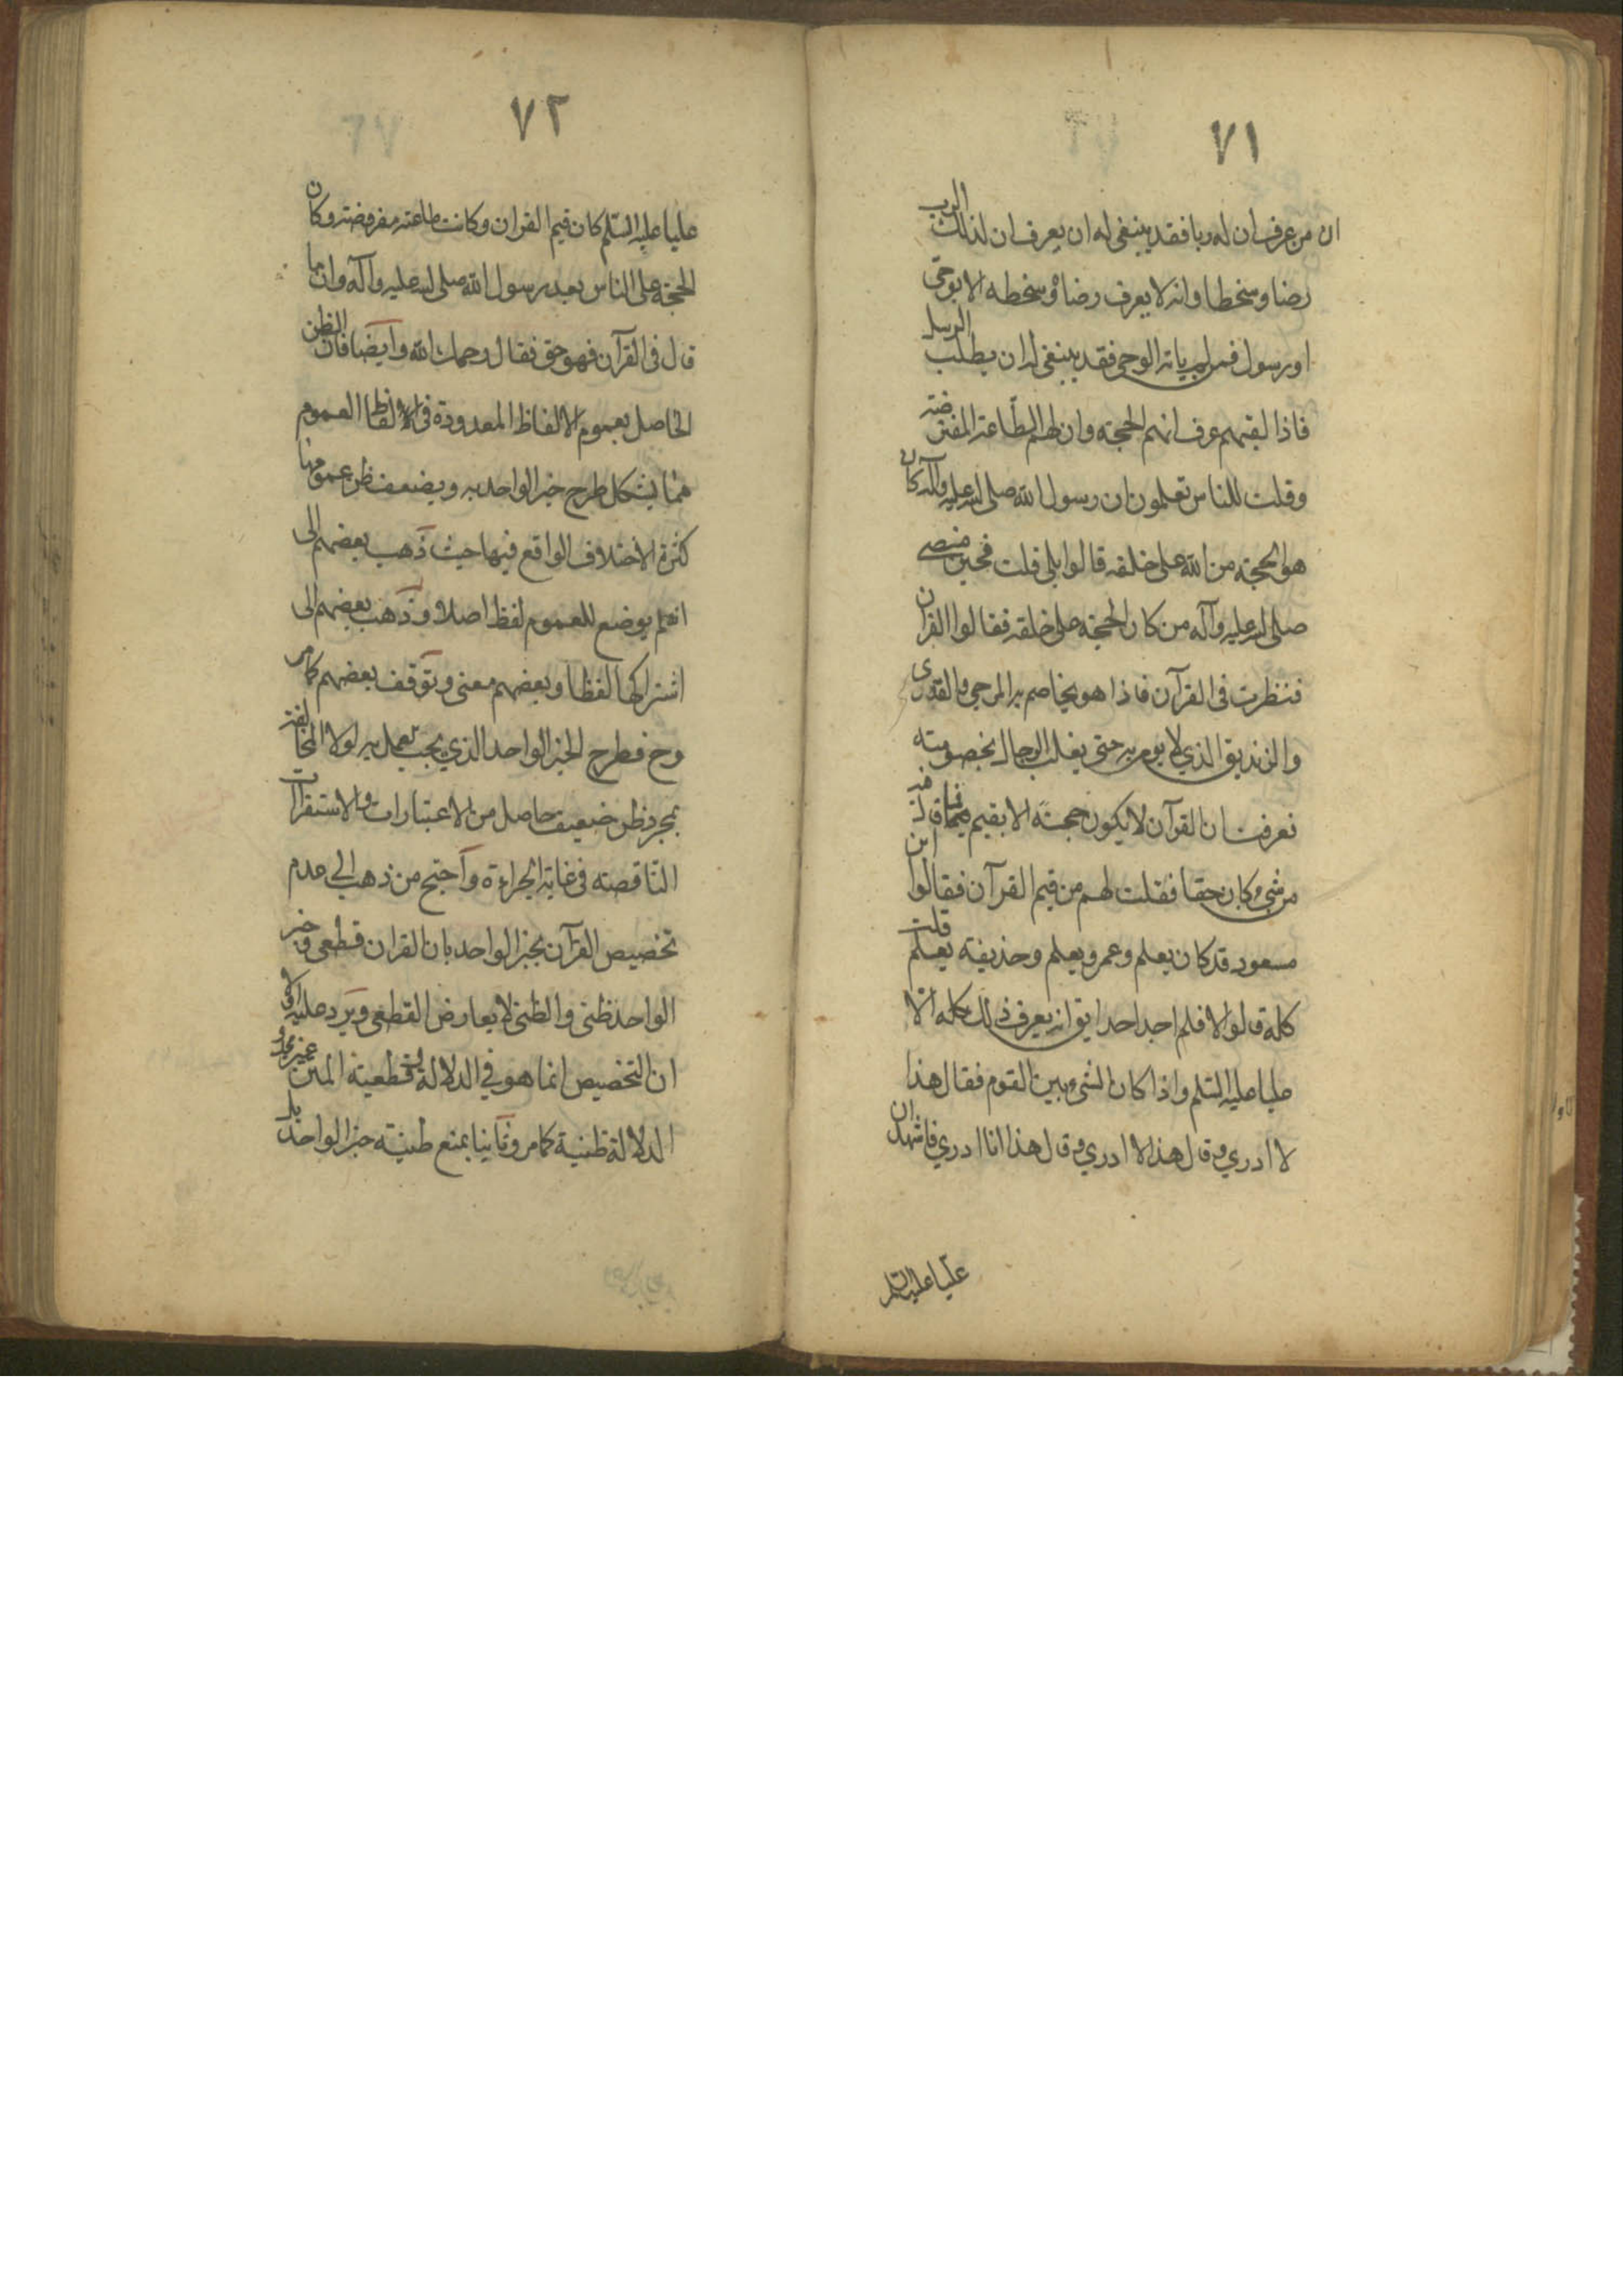 ٧١
ان من عرف ان له ربا فقد ينبغي له ان يعرف ان لذلك الرب
رضا وسخطا وانه لا يعرف رضاه وسخطه الا بوحي
او رسول فمن لم ياته الوحي فقد ينبغي له ان يطلب الرسل
فاذا لقيهم عرف انهم الحجة وان لهم الطاعة المفترضة
وقلت للناس تعلمون ان رسول الله صلى الله عليه وآله كان
هو الحجة من الله على خلقه قالوا بلى قلت فحين مضى
صلى الله عليه وآله من كان الحجة على خلقه فقالوا القرآن
فنظرت في القرآن فاذا هو يخاصم به المرجي والقدري
والزنديق الذي لا يومن به حتى يغلب الرجال بخصومته
فعرفت ان القرآن لا يكون حجة الا بقيم فما قال فيه
من شيء كان حقا فقلت لهم من قيم القرآن فقالوا ابن
مسعود قد كان يعلم وعمر يعلم وحذيفة يعلم قلت
كله قالوا لا فلم اجد احدا يق انه يعرف ذلك كله الا
عليا عليه السلم واذا كان الشيء بين القوم فقال هذا
لا ادري وقال هذا لا ادري وقال هذا انا ادري فاشهد ان
عليا عليه السلم
٧٢
عليا عليه السلم كان قيم القران وكانت طاعته مفروضة وكان
الحجة على الناس بعد رسول الله صلى الله عليه وآله وان ما
قال في القرآن فهو حق فقال رحمك الله وايضا فان الظن
الحاصل بعموم الالفاظ المعدودة في الفاظ العموم
مما يشكل طرح خبر الواحد به ويضعف ظن عمومها
كثرة الاختلاف الواقع فيها حيث ذهب بعضهم الى
انه لم يوضع للعموم لفظ اصلا وذهب بعضهم الى
اشتراكها لفظا وبعضهم معنى وتوقف بعضهم كما مر
وح فطرح الخبر الواحد الذي يجب العمل به لولا المخالفة
بمجرد ظن ضعيف حاصل من الاعتبارات والاستقراآت
الناقصة في غاية الجراءة واحتج من ذهب الى عدم
تخصيص القرآن بخبر الواحد بان القران قطعي وخبر
الواحد ظني والظني لا يعارض القطعي ويرد عليه اولا
ان التخصيص انما هو في الدلالة وقطعية المتن غير مجد و
الدلالة ظنية كما مر وثانيا بمنع ظنية خبر الواحد بل